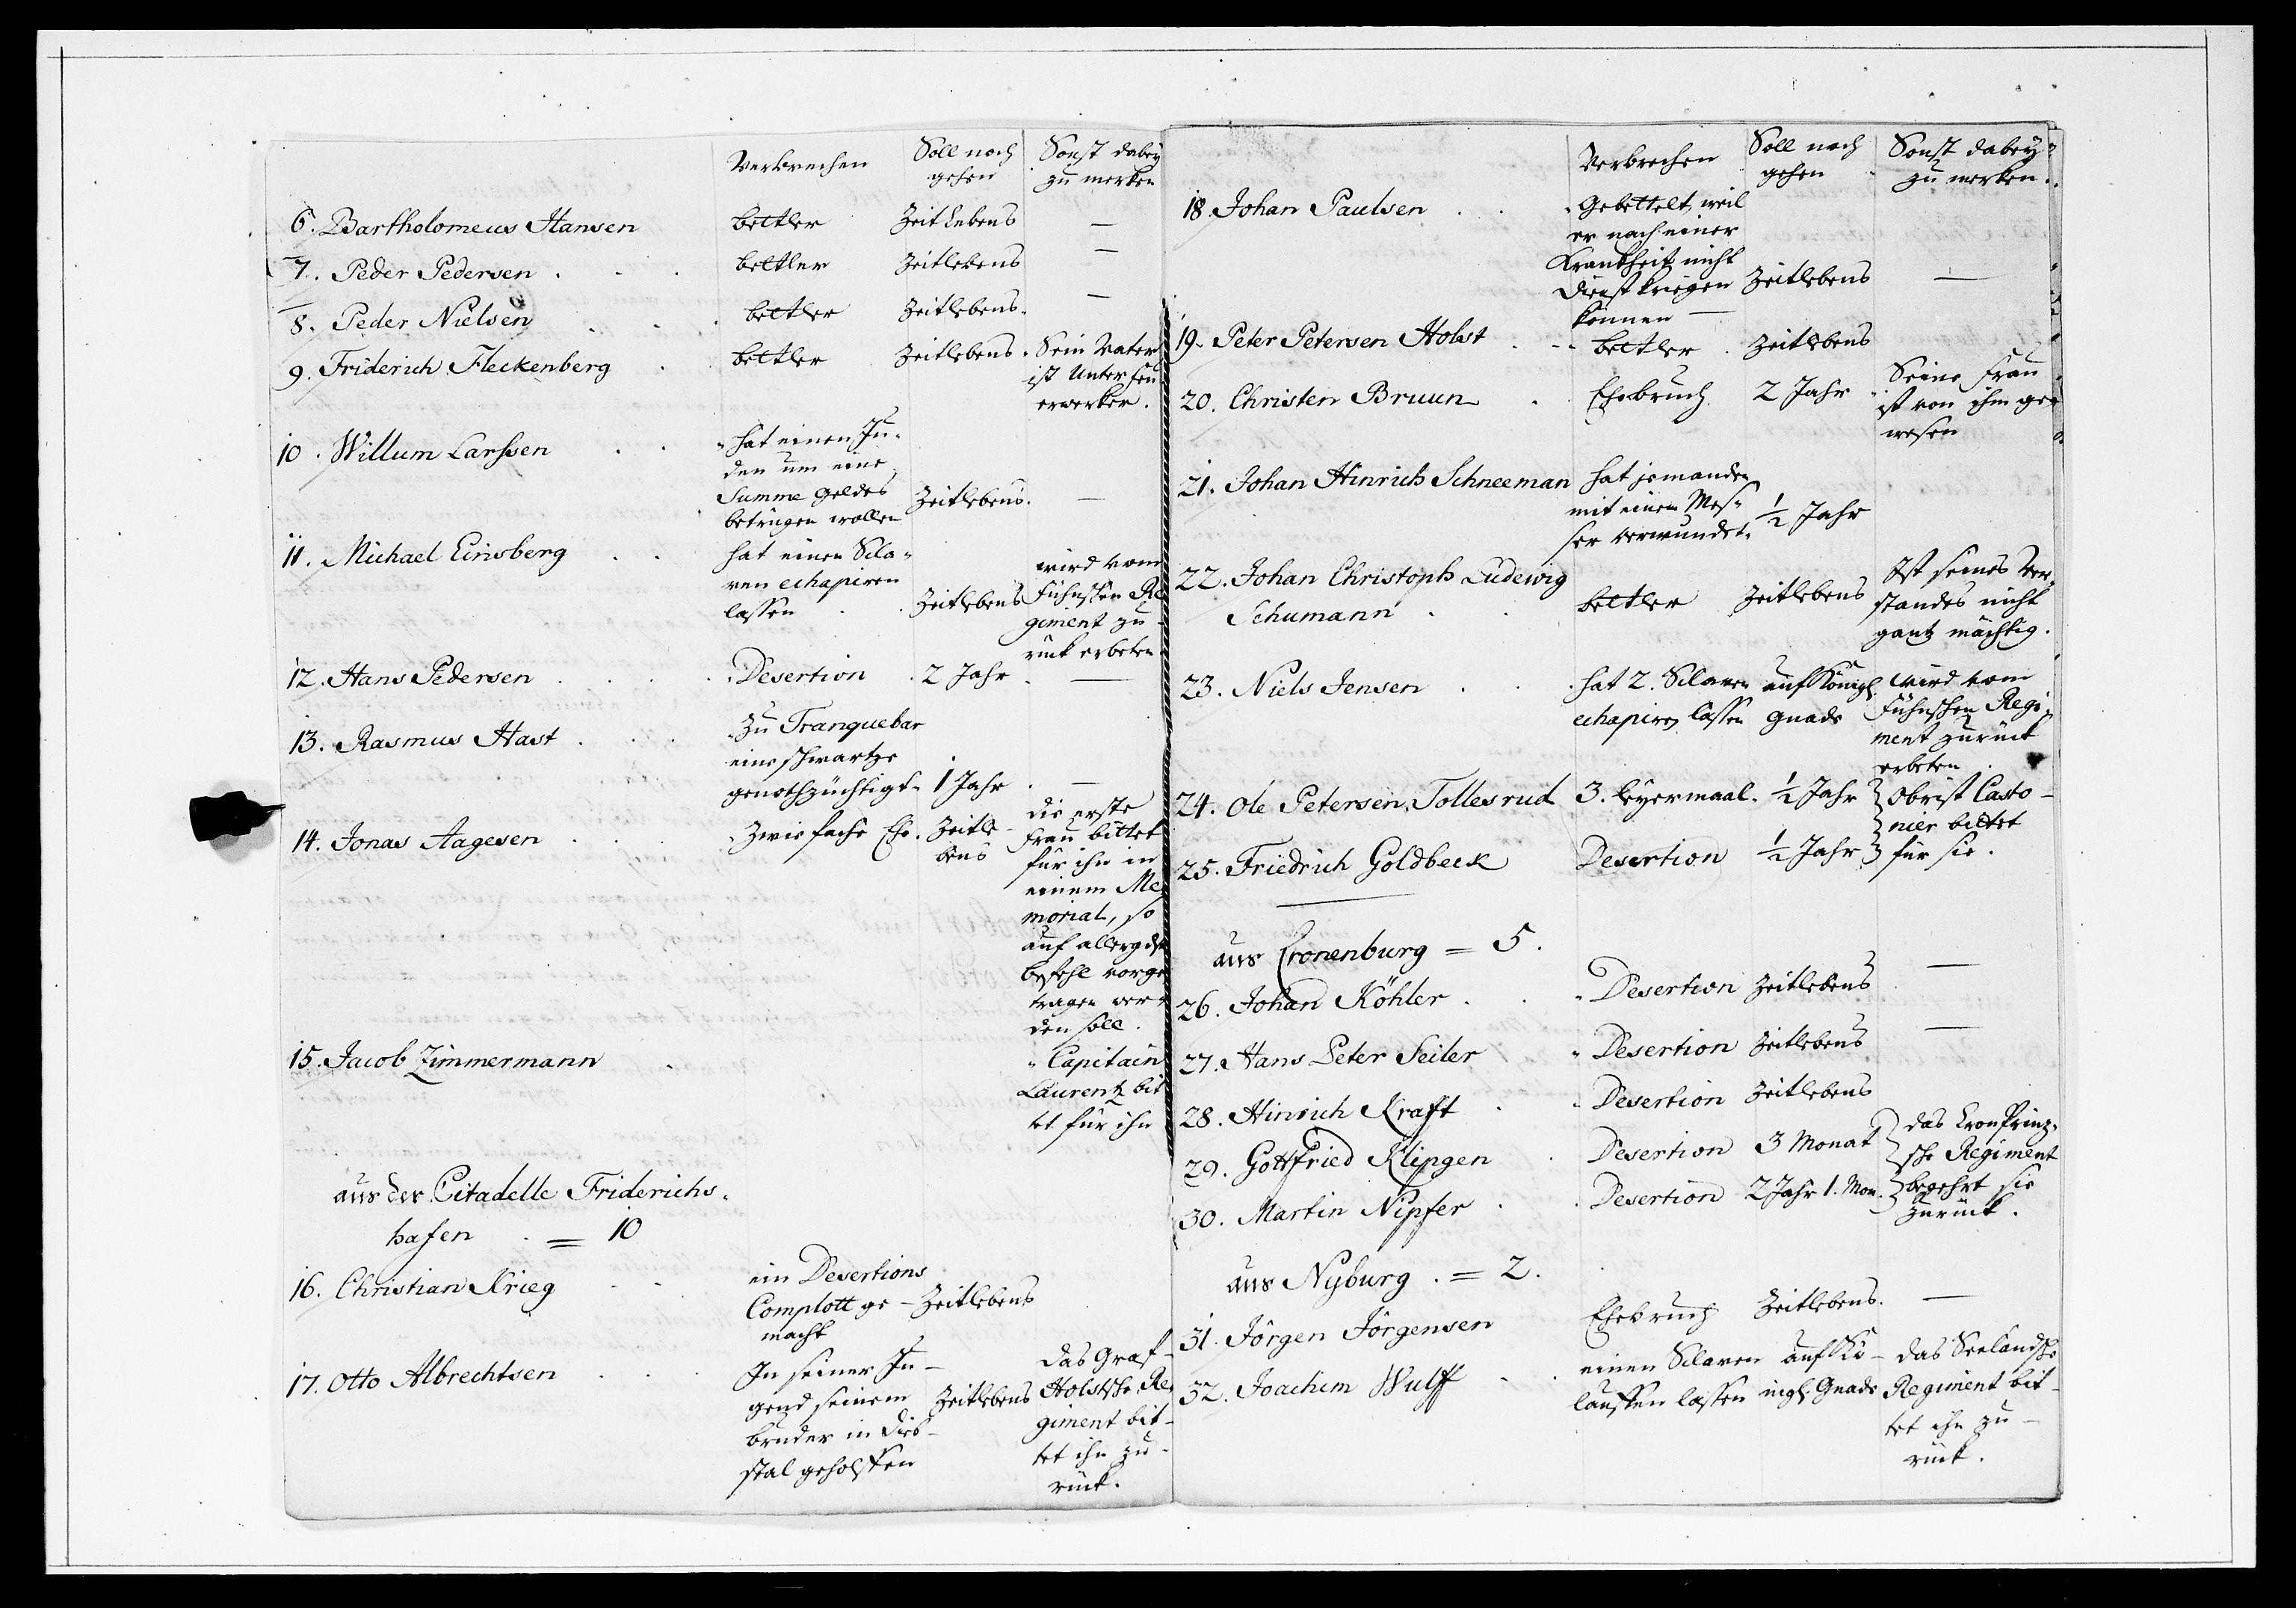 Verbrechen Soll noch Sonst dabey
gehen zu merken
6. Bartholomeus Hansen bettler Zeitlebens —
7. Peder Pedersen . . . bettler Zeitlebens —
8. Peder Nielsen . . . bettler Zeitlebens. —
9. Friderich Fleckenberg . bettler Zeitlebens. Sein Vater
ist Unter feu
erwerker.
10. Willum Larssen . . hat einen Ju-
den um eine
Summe Geldes
betrügen wollen Zeitlebens. —
11. Michael Einsberg . . hat einen Scla-
ven echapiren
lassen . . Zeitlebens wird vom
Fühnschen Re
giment zu-
rück erbeten
12. Hans Pedersen . . . . Desertion . 2 Jahr . —
13. Rasmus Hast . . . zu Tranquebar
eine schwartze
genothzüchtigt. 1 Jahr . —
14. Jonas Aagesen . . . Zwiefache Ehe. Zeitle-
bens
die erste
Frau bittet
für ihn in
einem Me
morial, so
auf allergdst
befehl vorge
tragen wer-
den soll.
15. Jacob Zimmermann . Capitain
Laurentz bit
tet für ihn
aus der Citadelle Friderichs-
hafen . = 10
16. Christian Krieg . . ein Desertions
Complott ge- Zeitlebens
macht
17. Otto Albrechtsen . . . In seiner Ju-
gend seinem Zeitlebens
bruder in Dieb-
stal geholffen
das Graf-
Holstsche Re
giment bit-
tet ihn zu-
rück.
Verbrechen Soll noch Sonst dabey
gehen zu merken.
18. Johan Paulsen . . Gebettelt, weil
er nach einer
Krankheit nicht
Dienst kriegen Zeitlebens —
können —
19. Peter Petersen Holst . . bettler . Zeitlebens
20. Christen Bruun . . Ehebruch 2 Jahr Seine Frau
ist von ihm ge-
wesen
21. Johan Hinrich Schneeman hat jemanden
mit einem Mes-
ser verwundet. ½ Jahr
22. Johan Christoph Ludewig
Schumann . . bettler Zeitlebens Ist seines Ver-
standes nicht
gantz mächtig.
23. Niels Jensen . . . hat 2. Sclaven auf Königl. wird vom
echapiren lassen Gnade Fühnschen Regi-
ment zurück
erbeten .
24. Ole Petersen Tollesrud 3. leyermaal. ½ Jahr Obrist Casto-
nier bittet
25. Friedrich Goldbeck Desertion ½ Jahr für sie.
aus Cronenburg = 5.
26. Johan Köhler . . . Desertion Zeitlebens —
27. Hans Peter Seiler . Desertion Zeitlebens —
28. Hinrich Kraft . . Desertion Zeitlebens
29. Gottfried Klingen . Desertion 3 Monat das Cronprinz-
sche Regiment
30. Martin Nipfer . . Desertion 2 Jahr 1. Mon. begehrt sie
zurück.
aus Nyburg . = 2.
31. Jörgen Jörgensen Ehebruch Zeitlebens. —
32. Joachim Wulff . . einen Sclaven auf Kö- das Seelandsche
lauffen lassen nigl. Gnade Regiment bit-
tet ihn zu-
rück.